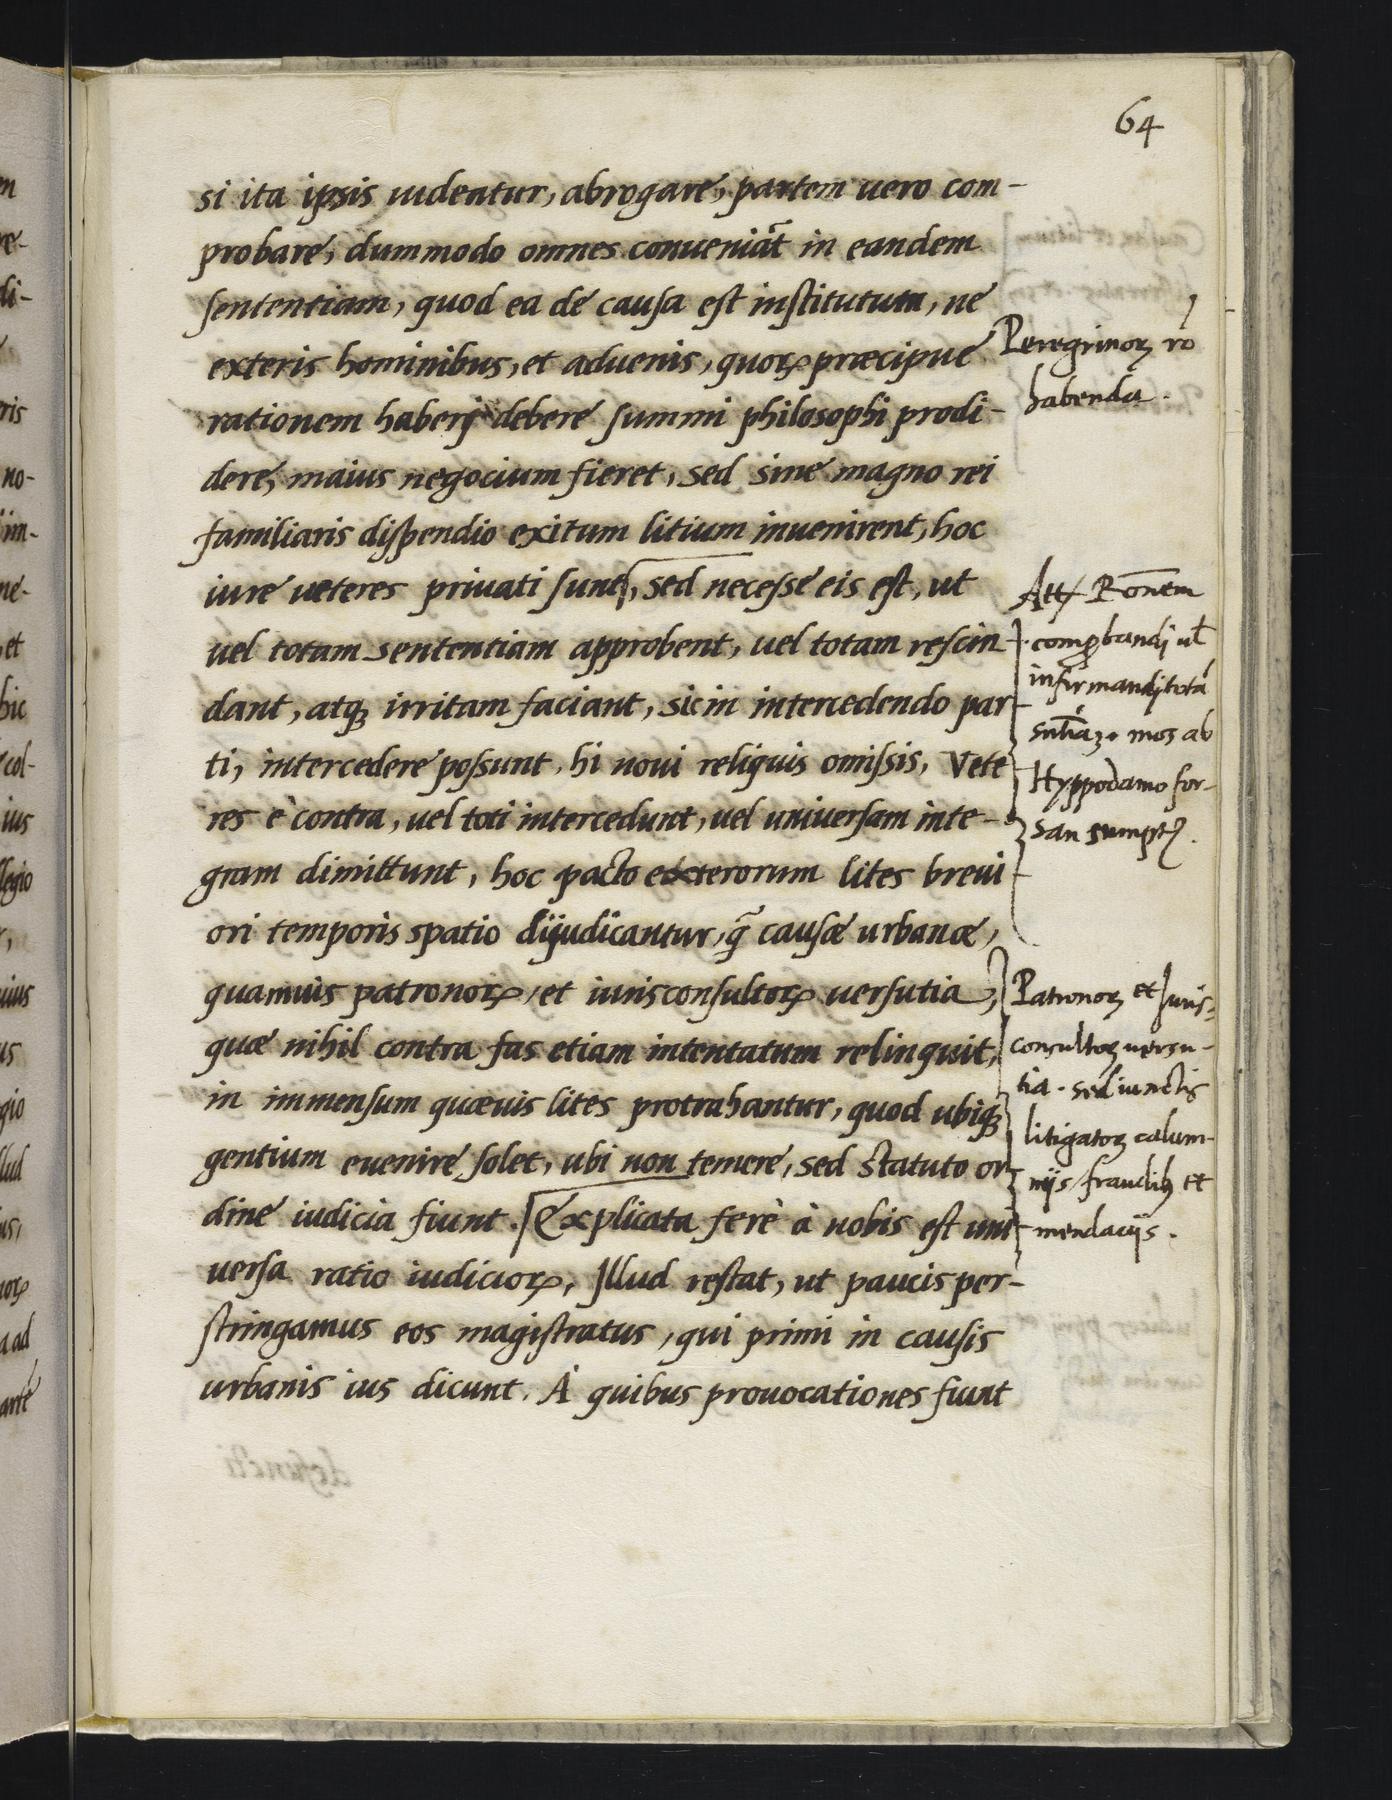 64
si ita ipsis uideatur, abrogare, partem uero com-
probare, dummodo omnes conueniāt in eandem
ſententiam, quod ea de cauſa eſt inſtitutum, ne
exteris hominibus, et aduenis, quorꝝ præcipue
rationem haberj debere ſummi philosophi prodi-
dere, maius negocium fieret, sed sine magno rei
familiaris diſpendio exitum litium inuenirent, hoc
iure ueteres priuati ſunt, sed neceſse eis eſt, ut
uel totam sententiam approbent, uel totam reſcin
dant, atqꝫ irritam faciant, sic in intercedendo par-
ti, intercedere poſsunt, hi noui reliquis omiſsis, Vete
res è contra, uel toti intercedunt, uel uniuerſam inte-
gram dimittunt, hoc pacto exterorum lites breui
ori temporis spatio dijudicantur, q̃ cauſæ urbanæ,
quamuis patronorꝝ, et iurisconſultorꝝ uerſutia,
quæ nihil contra fas etiam intentatum relinquit,
in immenſum quæuis lites protrahantur, quod ubiqꝫ
gentium euenire ſolet, ubi non temere, sed statuto or
dine iudicia fiunt. Explicata ferè à nobis eſt uni
uerſa ratio iudiciorꝝ, Illud reſtat, ut paucis per-
ſtringamus eos magiſtratus, qui primi in cauſis
urbanis ius dicunt. À quibus prouocationes fiunt
Peregrinoꝝ rō
habenda.
Rōnem
comꝓbandj ul̄
infirmandj totā
mos ab
Hyppodamo for-
san sumpt⁹.
Patronoꝝ et Juris-
consultoꝝ uersu-
tia. sed iunctis
litigatoꝝ calum-
nijs, fraudibꝫ et
mendacijs.